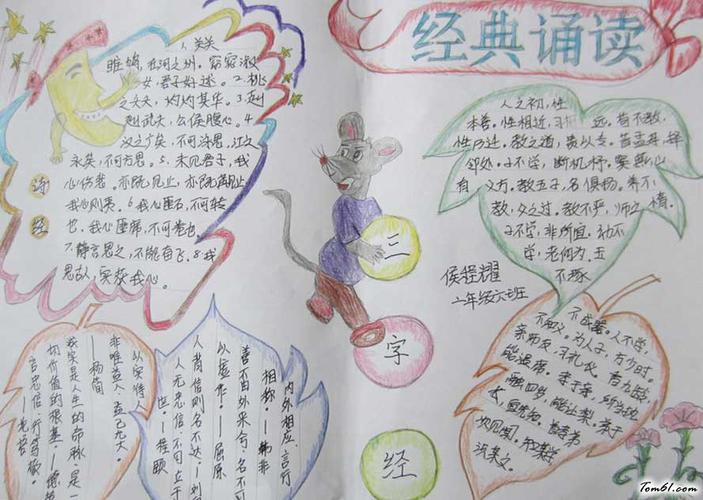 经典诵读
1.关关
雎鸠,在河之洲。窈窕淑
女,君子好逑。2.桃
之夭夭,灼灼其华。3.赳
赳武夫,公侯腹心。4.
汉之广矣,不可泳思。江之
永矣,不可方思。5.未见君子,我
心伤悲。亦既见止,亦既觏止,
我心则夷。6.我心匪石,不可转
也。我心匪席,不可卷也。
7.静言思之,不能奋飞。8.我
思古人,实获我心。
诗经
人之初,性
本善。性相近,习相远。苟不教,
性乃迁。教之道,贵以专。昔孟母,择
邻处。子不学,断机杼。窦燕山,
有义方。教五子,名俱扬。养不
教,父之过。教不严,师之惰。
子不学,非所宜。幼不
学,老何为。玉
不琢
不成器。人不学,
不知义。为人子,方少时。
亲师友,习礼仪。香九龄,
能温席。孝于亲,所当执。
融四岁,能让梨。弟于
长,宜先知。首孝弟,
次见闻。知某数,
识某文。
三
字
经
侯程耀
二年级六班
内外相应,言行
相称。--韩非
善不由外来兮,名不可
以虚作。--屈原
人背信则名不达。--刘
人无忠信,不可立于
也--程颐
以实待
非惟益人,益己尤大。
--杨简
我实是人生的命脉,是一
切价值的根基。--德莱
言忠信,行笃敬。
--孔子
Tom61.com